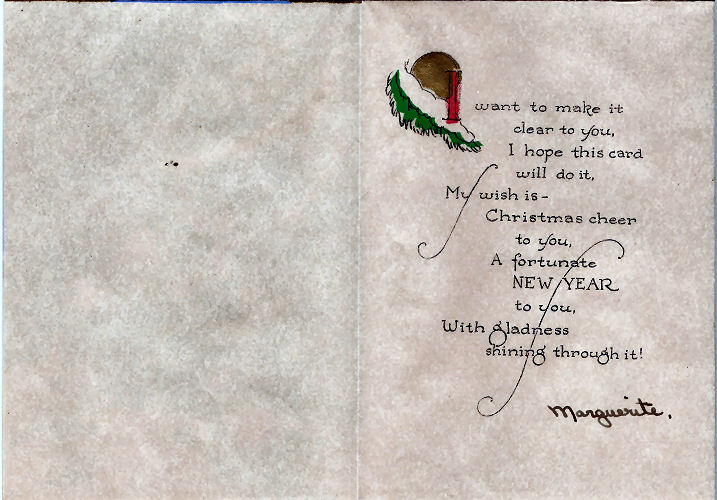 I want to make it
clear to you,
I hope this card
will do it,
My wish is-
Christmas cheer
to you,
A fortunate
NEW YEAR
to you,
With gladness
shining through it!
Marguerite.